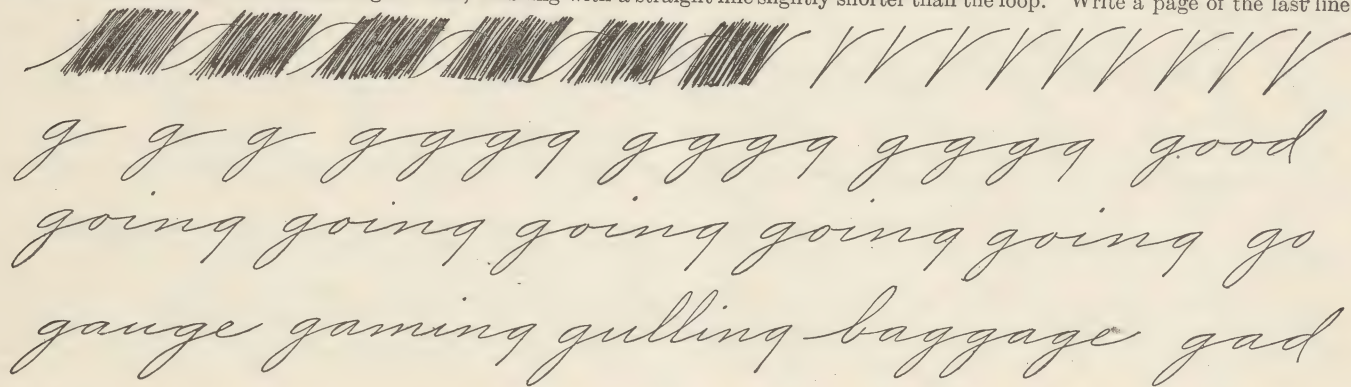 with a straight line slightly shorter than the loop. Write a page of the last line
g g g gggg gggg gggg good
going going going going going go
gauge gaming gulling baggage gad